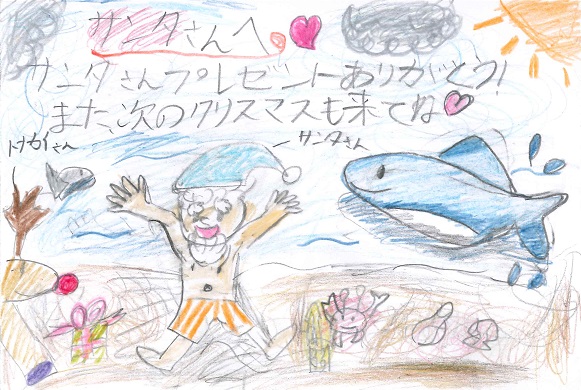 サンタさんへ。
サンタさんプレゼントありがとう!
また、次のクリスマスも来てね
トナカイさん
サンタさん